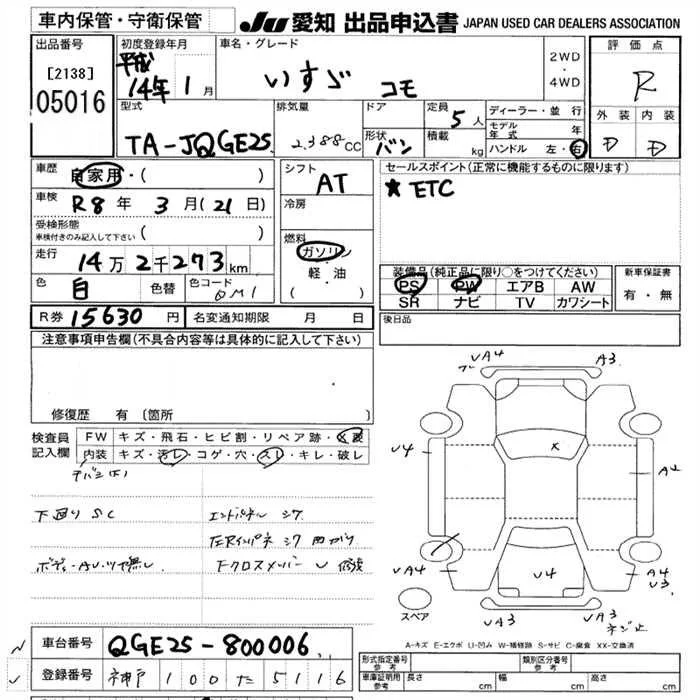 車内保管・守衛保管 JU 愛知 出品申込書 JAPAN USED CAR DEALERS ASSOCIATION
出品番号 初度登録年月 車名・グレード 2WD・4WD 評価点
[2138] 平成 いすゞ コモ R
05016 14年1月
型式 排気量 ドア 定員 5人 ディーラー・並行 外装 内装
モデル年式 年
TA-JQGE25 2.388cc 形状 バン 積載 kg ハンドル 左・右 D D
車歴 自家用・( ) シフト AT セールスポイント(正常に機能するものに限ります)
車検 R8年 3月(21日) 冷房 ★ ETC
受検形態
車検付きのみ記入して下さい ( )
走行 14万2千273km 燃料 ガソリン・軽油 ( )
色 白 色替 色コード QM1
装備品(純正品に限り○をつけてください) 新車保証書
PS PW エアB AW 有・無
SR ナビ TV カワシート
R券 15630円 名変通知期限 月 日 後日品
注意事項申告欄(不具合内容等は具体的に記入して下さい)
修復歴 有 (箇所
検査員記入欄 FW キズ・飛石・ヒビ割・リペア跡・
内装 キズ・汚レ・コゲ・穴・スレ・キレ・破レ
下廻り SC エンドパネル シワ
修複
VA4 A3
V4 X A4
VA4 V4 A4 V3
VA3 VA3 ネジ止
スペア
A-キズ E-エクボ U-凹み W-補修跡 S-サビ C-腐食 XX-交換済
車台番号 QGE25-800006
登録番号 神戸 100 た 5116
形式指定番号 参考 類別区分番号 参考
車庫証明用 参考 長さ cm 幅 cm 高さ cm